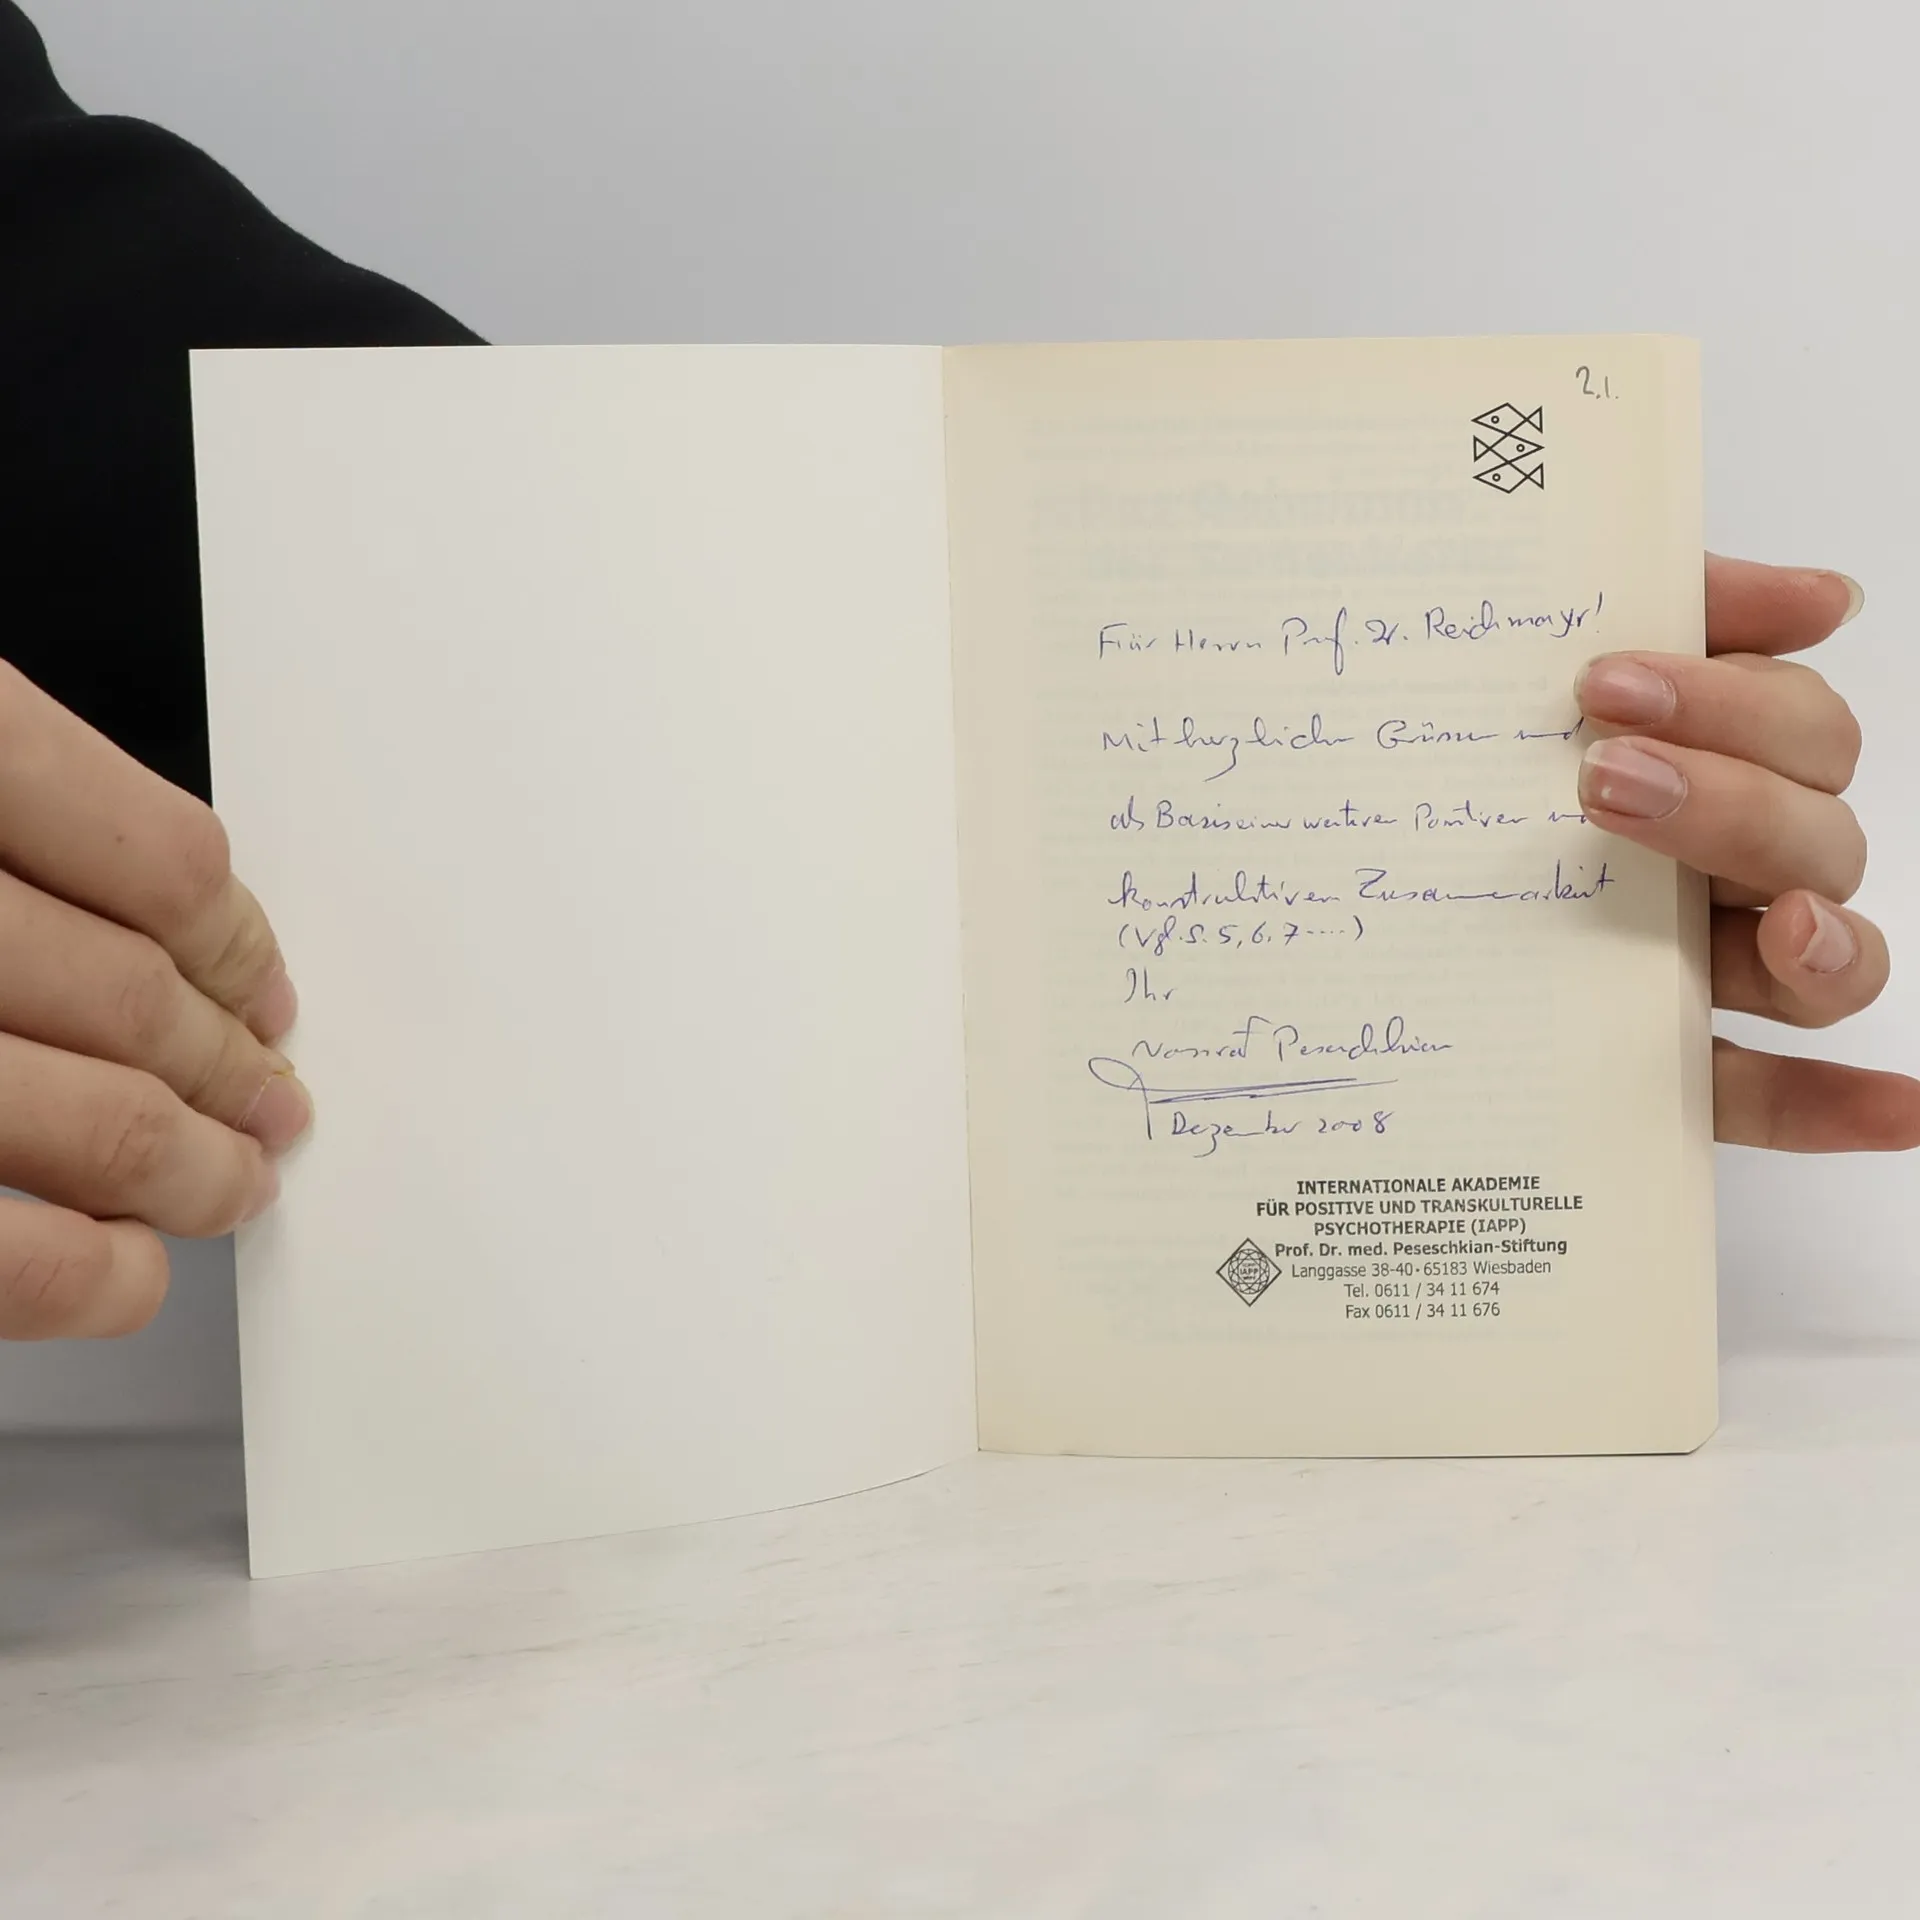 2.1.
Für Herrn Prof. Dr. Reichmayr!
Mit herzlichen Grüssen und
als Basis einer weiteren Positiven und
konstruktiven Zusammenarbeit
(Vgl. S. 5, 6, 7 ....)
Ihr
Nossrat Peseschkian
Dezember 2008
INTERNATIONALE AKADEMIE
FÜR POSITIVE UND TRANSKULTURELLE
PSYCHOTHERAPIE (IAPP)
Prof. Dr. med. Peseschkian-Stiftung
IAPP
Langgasse 38-40 · 65183 Wiesbaden
Tel. 0611 / 34 11 674
Fax 0611 / 34 11 676